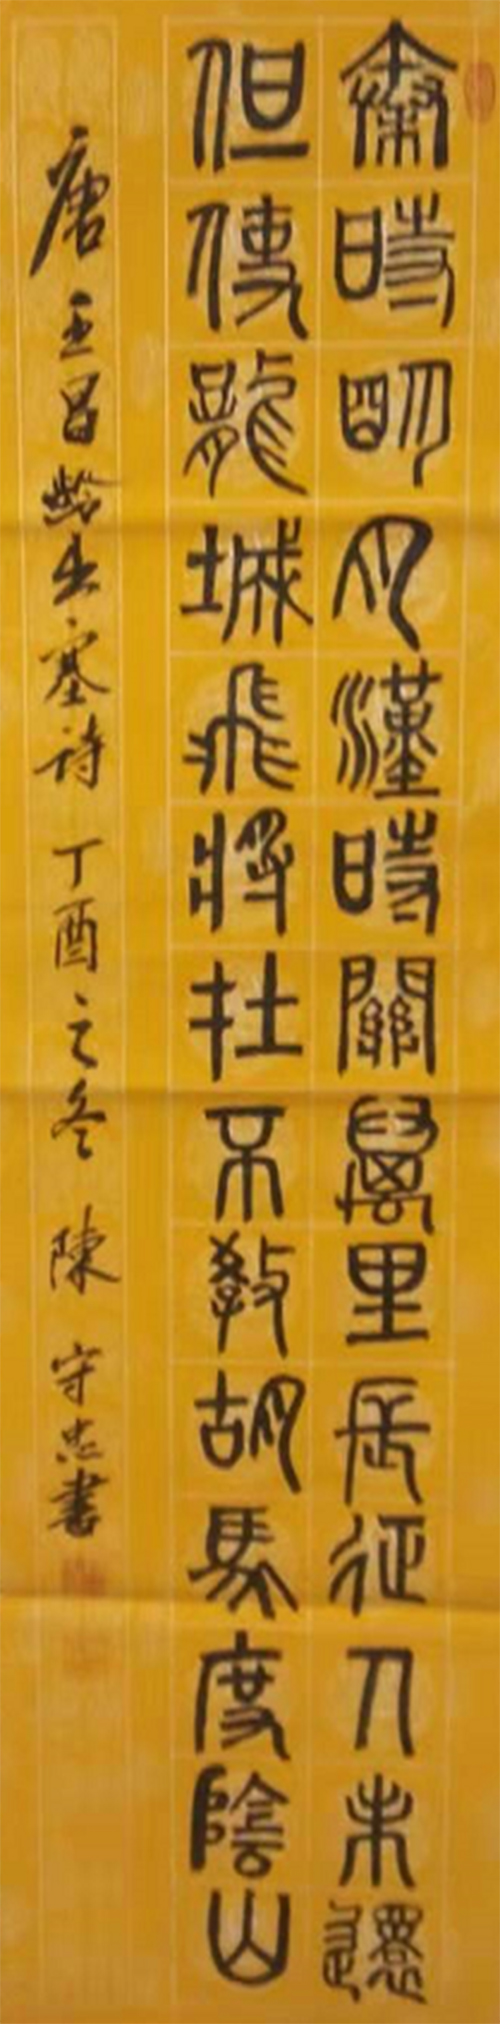 秦時明月漢時關萬里長征人未還
但使龍城飛將在不教胡馬度陰山
唐王昌齡出塞詩 丁酉之冬 陳守忠書